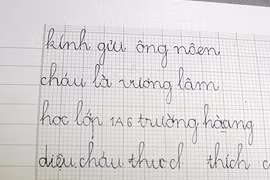 kính gửu ông nôen
cháu là vương lâm
học lớp 1A6 trường hoàng
diệu. cháu thưcd thích c